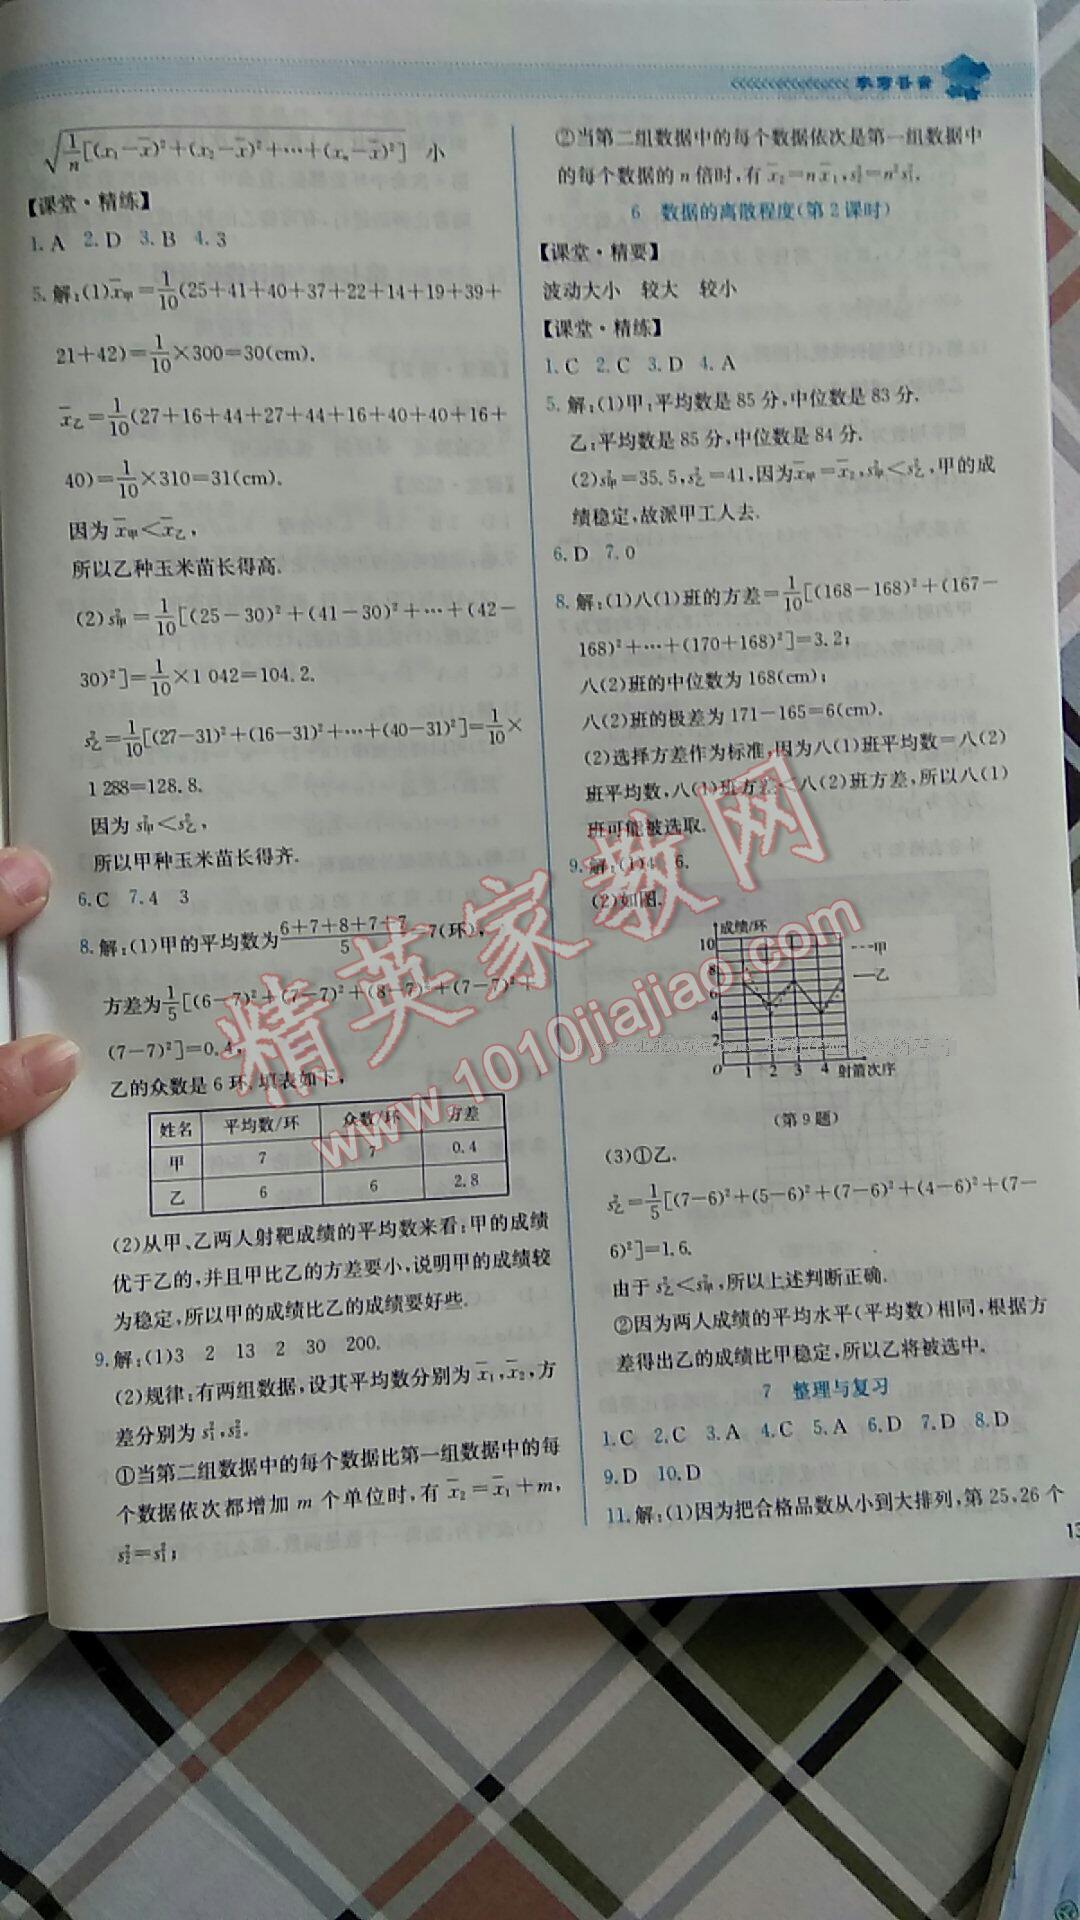 参考答案
√1/n[(x₁－x̄)²＋(x₂－x̄)²＋…＋(xₙ－x̄)²]　小
【课堂·精练】
1. A　2. D　3. B　4. 3
5. 解：(1)x̄甲＝1/10(25＋41＋40＋37＋22＋14＋19＋39＋
21＋42)＝1/10×300＝30(cm).
x̄乙＝1/10(27＋16＋44＋27＋44＋16＋40＋40＋16＋
40)＝1/10×310＝31(cm).
因为 x̄甲＜x̄乙，
所以乙种玉米苗长得高.
(2)s²甲＝1/10[(25－30)²＋(41－30)²＋…＋(42－
30)²]＝1/10×1 042＝104.2.
s²乙＝1/10[(27－31)²＋(16－31)²＋…＋(40－31)²]＝1/10×
1 288＝128.8.
因为 s²甲＜s²乙，
所以甲种玉米苗长得齐.
6. C　7. 4　3
8. 解：(1)甲的平均数为(6＋7＋8＋7＋7)/5＝7(环)，
方差为1/5[(6－7)²＋(7－7)²＋(8－7)²＋(7－7)²＋
(7－7)²]＝0.4，
乙的众数是 6 环，填表如下，
姓名　平均数/环　众数/环　方差
甲　7　7　0.4
乙　6　6　2.8
(2)从甲、乙两人射靶成绩的平均数来看：甲的成绩
优于乙的，并且甲比乙的方差要小，说明甲的成绩较
为稳定，所以甲的成绩比乙的成绩要好些.
9. 解：(1)3　2　13　2　30　200.
(2)规律：有两组数据，设其平均数分别为 x̄₁，x̄₂，方
差分别为 s²₁，s²₂.
①当第二组数据中的每个数据比第一组数据中的每
个数据依次都增加 m 个单位时，有 x̄₂＝x̄₁＋m，
s²₂＝s²₁；
②当第二组数据中的每个数据依次是第一组数据中
的每个数据的 n 倍时，有 x̄₂＝nx̄₁，s²₂＝n²s²₁.
6　数据的离散程度(第 2 课时)
【课堂·精要】
波动大小　较大　较小
【课堂·精练】
1. C　2. C　3. D　4. A
5. 解：(1)甲：平均数是 85 分，中位数是 83 分.
乙：平均数是 85 分，中位数是 84 分.
(2)s²甲＝35.5，s²乙＝41，因为x̄甲＝x̄乙，s²甲＜s²乙，甲的成
绩稳定，故派甲工人去.
6. D　7. 0
8. 解：(1)八(1)班的方差＝1/10[(168－168)²＋(167－
168)²＋…＋(170＋168)²]＝3.2；
八(2)班的中位数为 168(cm)；
八(2)班的极差为 171－165＝6(cm).
(2)选择方差作为标准，因为八(1)班平均数＝八(2)
班平均数，八(1)班方差＜八(2)班方差，所以八(1)
班可能被选取.
9. 解：(1)4　6.
(2)如图.
成绩/环
10
8
6
4
2
O　1　2　3　4　射箭次序
甲
乙
(第 9 题)
(3)①乙.
s²乙＝1/5[(7－6)²＋(5－6)²＋(7－6)²＋(4－6)²＋(7－
6)²]＝1.6.
由于 s²乙＜s²甲，所以上述判断正确.
②因为两人成绩的平均水平(平均数)相同，根据方
差得出乙的成绩比甲稳定，所以乙将被选中.
7　整理与复习
1. C　2. C　3. A　4. C　5. A　6. D　7. D　8. D
9. D　10. D
11. 解：(1)因为把合格品数从小到大排列，第 25、26 个
13
精英家教网
www.1010jiajiao.com